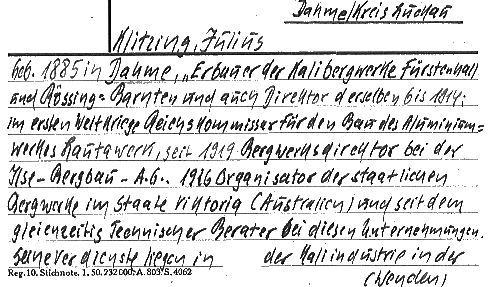 Dahme/Kreis Luckau
Klitzing, Julius
geb. 1885 in Dahme, „Erbauer der Kalibergwerke Fürstenhall
und Rössing-Barnten und auch Direktor derselben bis 1914;
im ersten Weltkriege Reichskommissar für den Bau des Aluminium=
werkes Lautawerk, seit 1919 Bergwerksdirektor bei der
Ilse-Bergbau-A.G.. 1926 Organisator der staatlichen
Bergwerke im Staate Viktoria (Australien) und seit dem
gleichzeitig Technischer Berater bei diesen Unternehmungen.
Seine Verdienste liegen in der Kaliindustrie in der
(wenden)
Reg. 10. Stichnote. 1. 50. 232000. A. 803/S. 4062